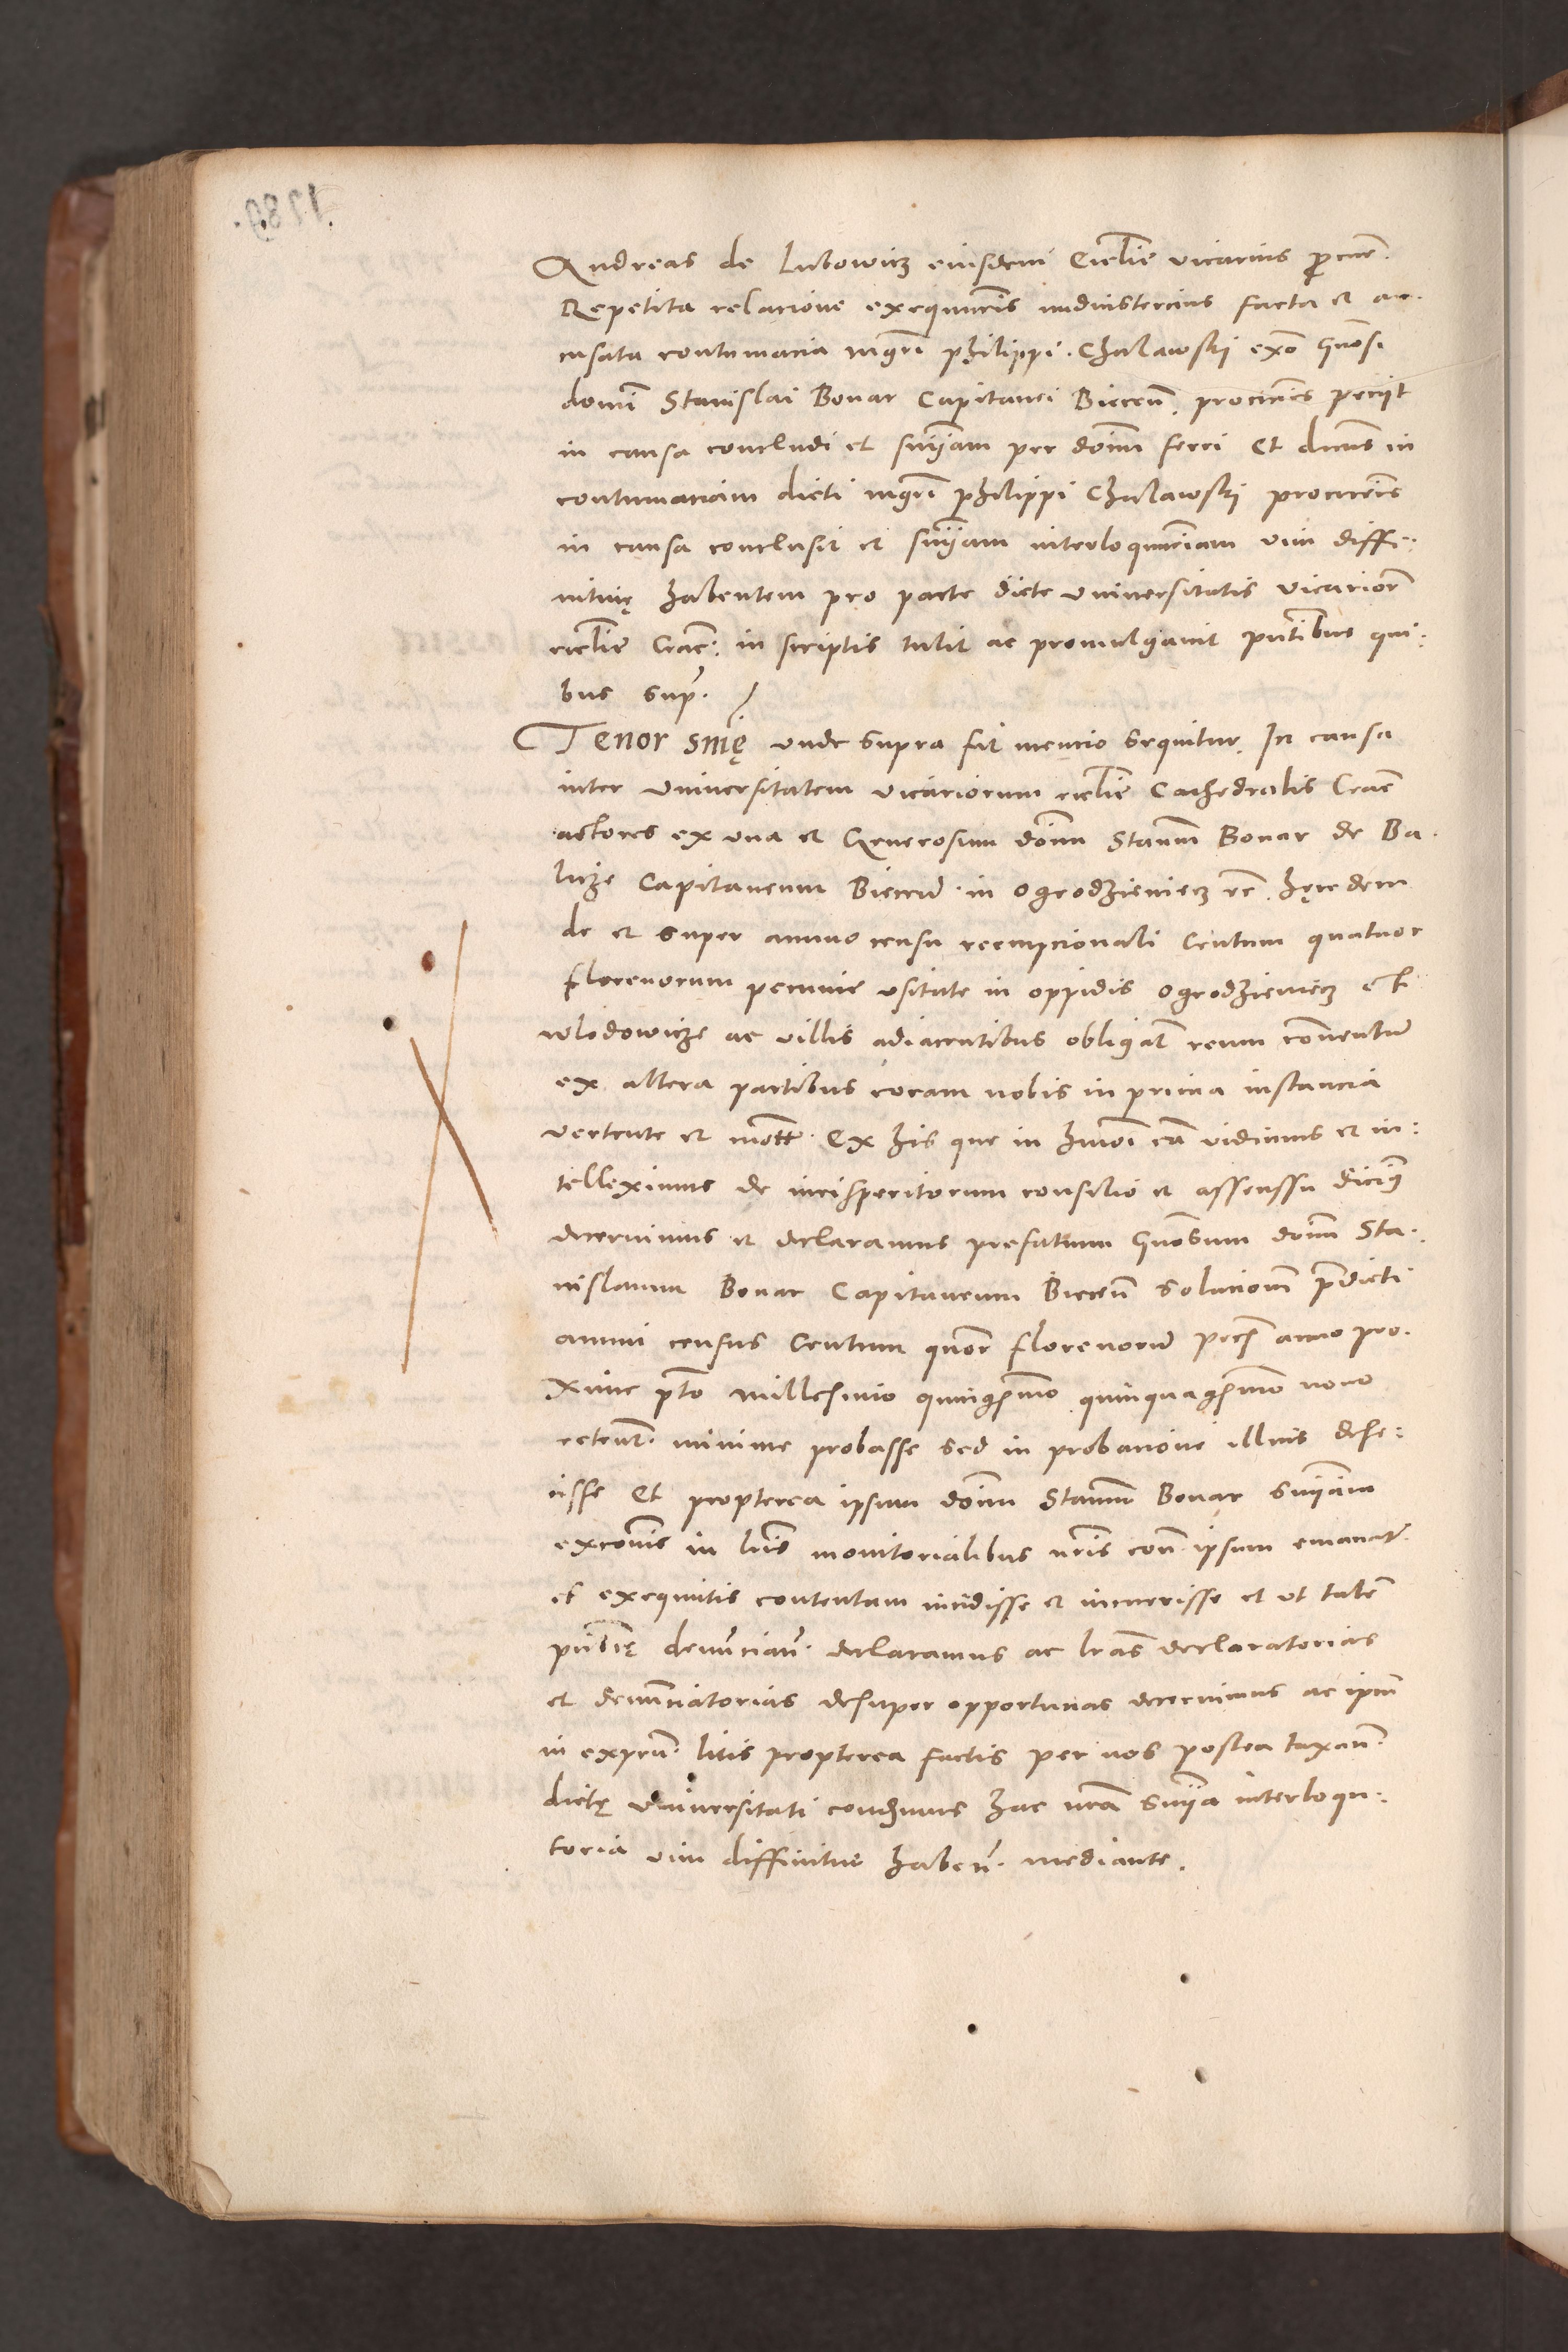 Andreas de Lubowicz eiusdem Ecclie vicarius procur.
Repetita relacione exequucionis nudiustercius facta et ac-
cusata contumacia mgri Philippi Chalawskj gnosi
domi Stanislai Bonar Capitanei Biecen. procuris peciit
in causa concludi et sniam per doim ferri Et dnus in
contumaciam dicti mgri Philippi Chalawskj procuris
in causa conclusit et sniam interloqutoriam vim diffi-
nitiuę habentem pro parte dicte Vniuersitatis Vicarior
ecclie Crac: in scriptis tulit ac promulgauit pntibus qui-
bus sup.
Tenor snię vnde supra fit mencio sequitur. In causa
inter Vniuersitatem vicariorum ecclie Cathedralis Crac
actores ex vna et Generosum doim Stanm Bonar de Ba-
licze Capitaneum Biecen. in Ogrodzieniecz etc. hęredem
de et super annuo censu reempcionali Centum quatuor
florenorum pecunie vsitate in oppidis Ogrodzieniecz et
Wlodowicze ac villis adiacentibus obligat reum conuentum
ex altera partibus coram nobis in prima instancia
vertente et mot. Ex his que in hmoi ca vidimus et in-
telleximus de iurisperitorum consilio et assenssu dicim
decernimus et declaramus prefatum gnosum doim Sta-
nislaum Bonar Capitaneum Biecen solucionem predicti
annui census Centum quor florenorum anno pro-
xime pto millesimo quingesimo quinquagesimo nono
retent. minime probasse sed in probacione illius defe-
cisse Et propterea ipsum doim Stanm Bonar sniam
excois in lris monitorialibus nris con ipsum emanat.
et exequutis contentam incidisse et incurrisse et vt talem
publicę denuncian. declaramus ac lras declaratorias
et denunciatorias desuper opportunas decernimus ac ipm
in expen. litis propterea factis per nos postea taxan.
dictę Vniuersitati condemus hac nra snia interloqu-
toria vim diffinitiue haben. mediante.